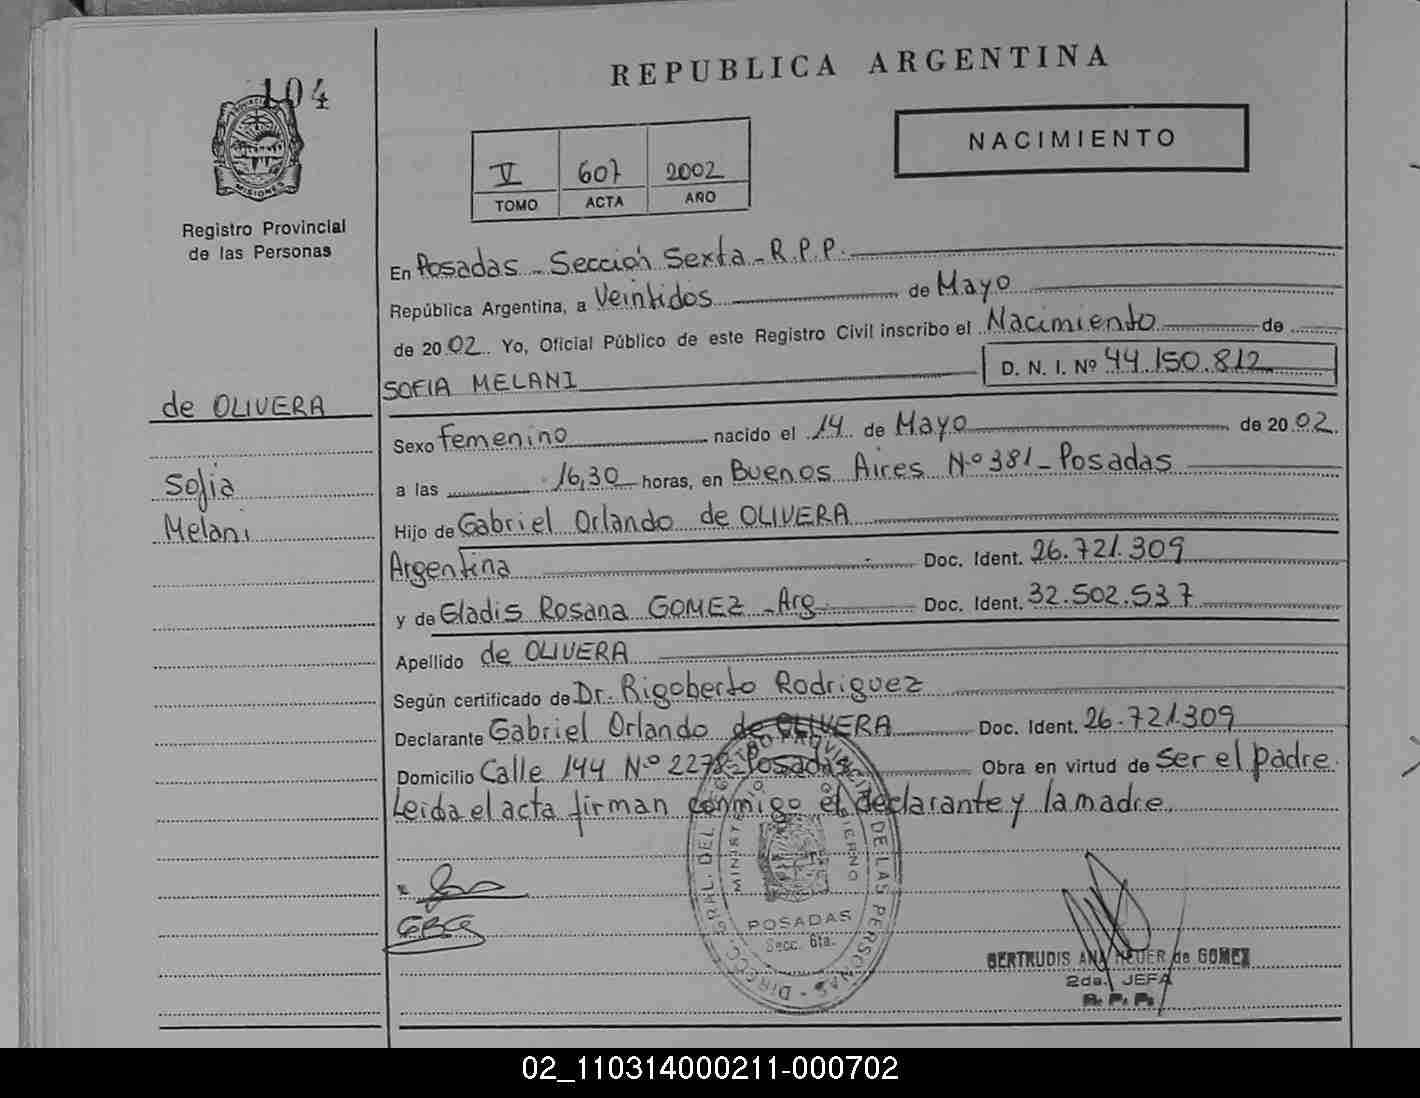 104
MISIONES
Registro Provincial
de las Personas
REPUBLICA ARGENTINA
NACIMIENTO
V 607 2002
TOMO ACTA AÑO
En Posadas - Sección Sexta - R.P.P.
República Argentina, a Veintidos de Mayo
de 2002. Yo, Oficial Público de este Registro Civil inscribo el Nacimiento de
SOFIA MELANI D. N. I. Nº 44.150.812
de OLIVERA
Sofia
Melani
Sexo femenino nacido el 14 de Mayo de 2002.
a las 16,30 horas, en Buenos Aires Nº 381 - Posadas
Hijo de Gabriel Orlando de OLIVERA
Argentina Doc. Ident. 26.721.309
y de Gladis Rosana GOMEZ - Arg. Doc. Ident. 32.502.537
Apellido de OLIVERA
Según certificado de Dr. Rigoberto Rodriguez
Declarante Gabriel Orlando de OLIVERA Doc. Ident. 26.721.309
Domicilio Calle 144 Nº 2278 - Posadas Obra en virtud de ser el padre.
Leida el acta firman conmigo el declarante y la madre.
DIRECC. GRAL. DEL REGISTRO PROVINCIAL DE LAS PERSONAS
MINISTERIO GOBIERNO
POSADAS
Secc. 6ta.
GRG
GERTRUDIS ANA de GOMEZ
2da. JEFA
R. P. P.
02_110314000211-000702